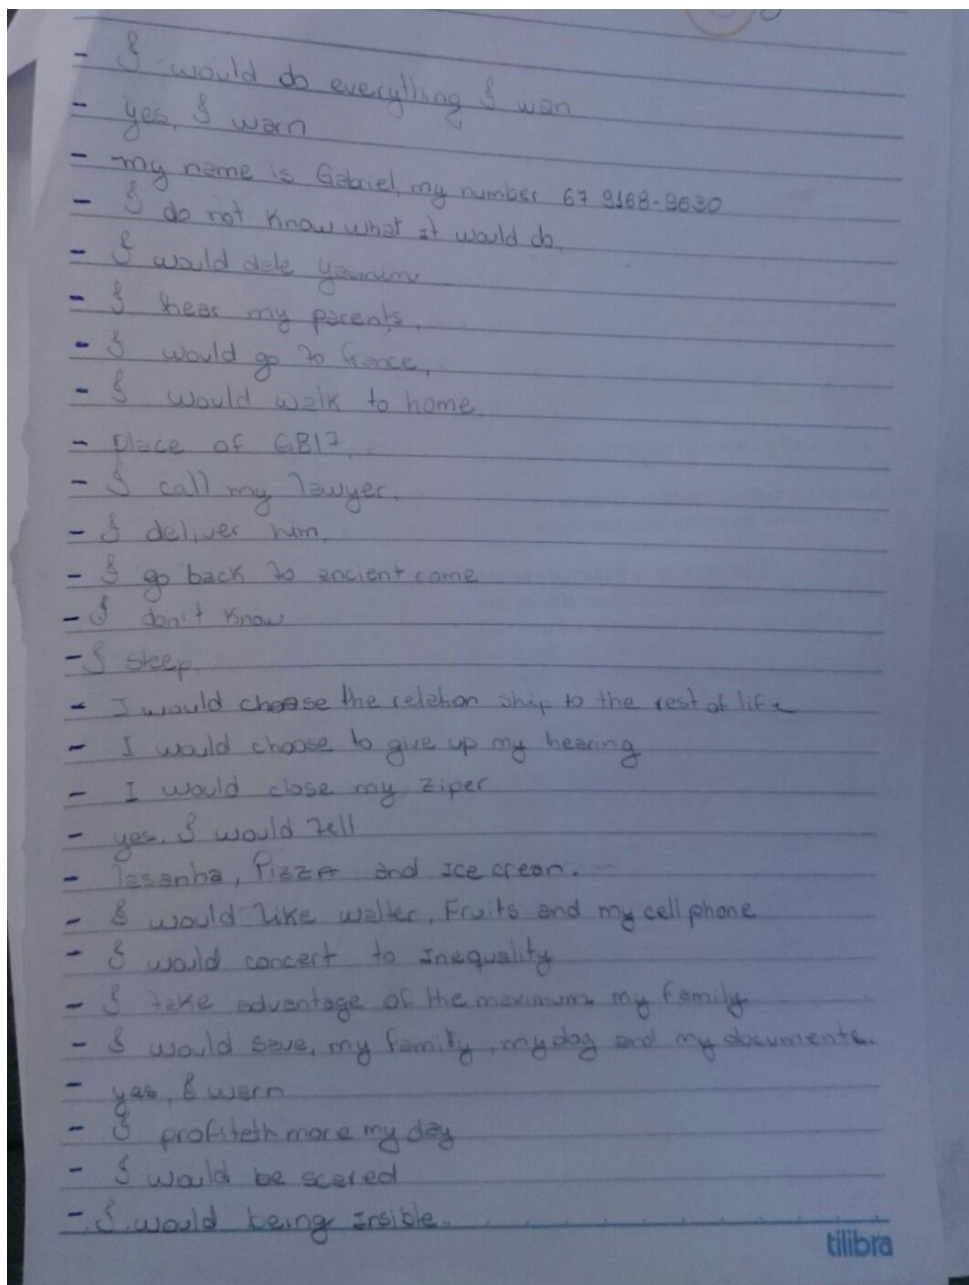 - I would do everything I wan
- yes, I warn
- my name is Gabriel, my number 67 9168-9630
- I do not know what it would do.
- I would date Yasmim
- I hear my parents.
- I would go to france.
- I would walk to home.
- place of GB17.
- I call my lawyer.
- I deliver him.
- I go back to ancient come
- I don't know
- I sleep.
- I would choose the relation ship to the rest of life
- I would choose to give up my hearing
- I would close my ziper
- yes. I would tell
- lasanha, Pizza and Ice crean.
- I would like walter, Fruits and my cell phone
- I would concert to Inequality
- I take advantage of the maximum my family
- I would save, my family, my dog and my documents.
- yes, I warn
- I profiteth more my day
- I would be scared
- I would being insible.
tilibra